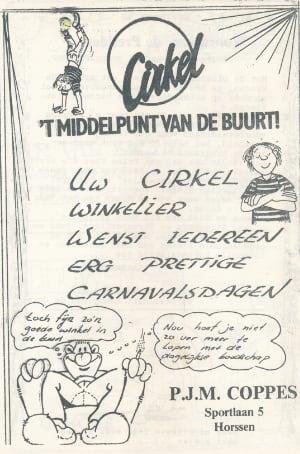 Cirkel
'T MIDDELPUNT VAN DE BUURT!
UW CIRKEL
WINKELIER
WENST IEDEREEN
ERG PRETTIGE
CARNAVALSDAGEN
toch fijn zo'n
goede winkel in
de buurt
Nou hoef je niet
zo ver meer te
lopen met de
dagelijkse boodschap
P.J.M. COPPES
Sportlaan 5
Horssen